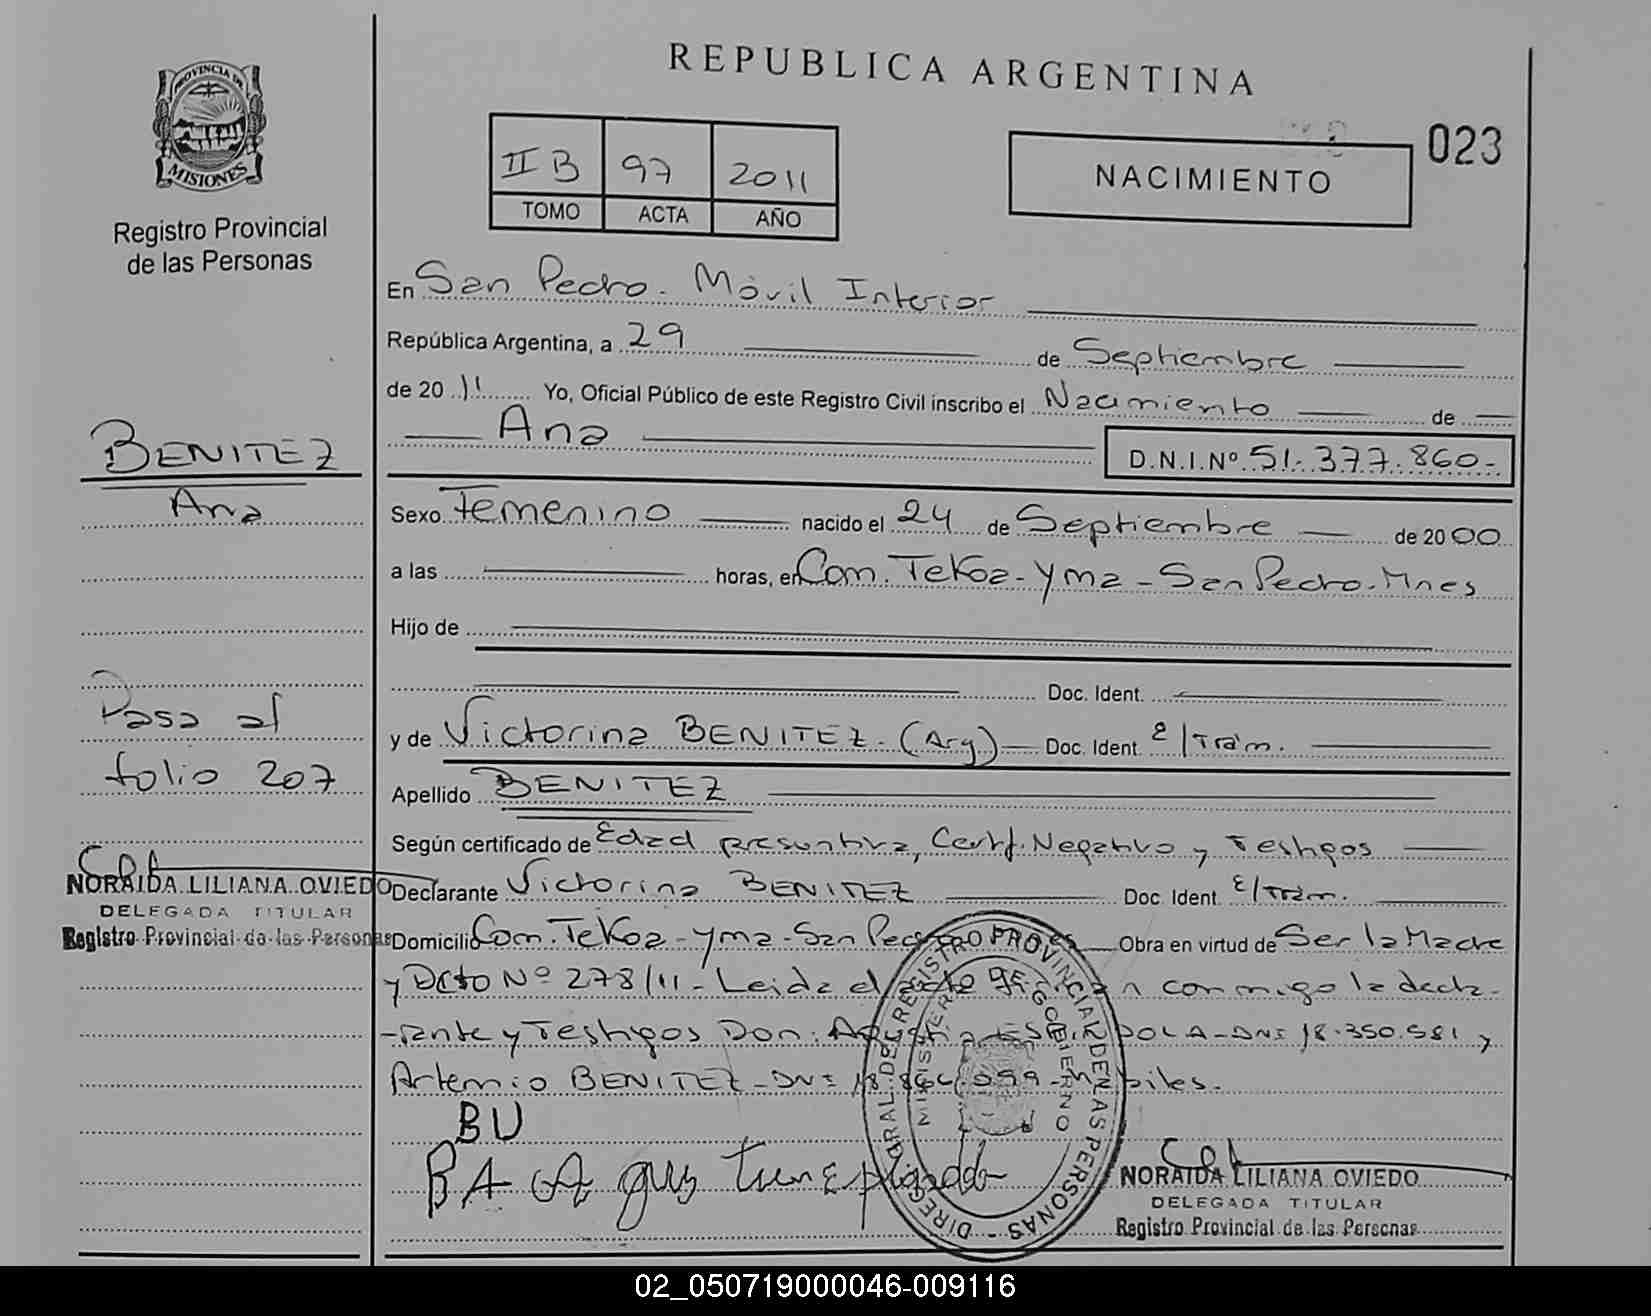 REPUBLICA ARGENTINA
PROVINCIA DE
MISIONES
Registro Provincial
de las Personas
II B 97 2011
TOMO ACTA AÑO
NACIMIENTO
023
En San Pedro. Móvil Interior
República Argentina, a 29 de Septiembre
de 20 11 Yo, Oficial Público de este Registro Civil inscribo el Nacimiento de
Ana
D.N.I.Nº 51.377.860-
BENITEZ
Ana
Sexo Femenino nacido el 24 de Septiembre de 2000
a las horas, en Com. TeKoa-Yma-San Pedro-Mnes
Hijo de
Doc. Ident.
y de Victorina BENITEZ-(Arg) Doc. Ident. E/Trám.
Pasa al
folio 207
Apellido BENITEZ
Según certificado de Edad presuntiva, Certf. Negativo y Testigos
Declarante Victorina BENITEZ Doc. Ident. E/Trám.
Domicilio Com. TeKoa-Yma-San Pedro Obra en virtud de Ser la Madre
y Dcto Nº 278/11- Leida el acta firman conmigo la decla-
-rante y Testigos Don: DNI 18.350.581 y
Artemio BENITEZ-DNI
NORAIDA LILIANA OVIEDO
DELEGADA TITULAR
Registro Provincial de las Personas
BU
BA
DIRECCION GRAL. DEL REGISTRO PROVINCIAL DE LAS PERSONAS
MINISTERIO DE GOBIERNO
NORAIDA LILIANA OVIEDO
DELEGADA TITULAR
Registro Provincial de las Personas
02_050719000046-009116